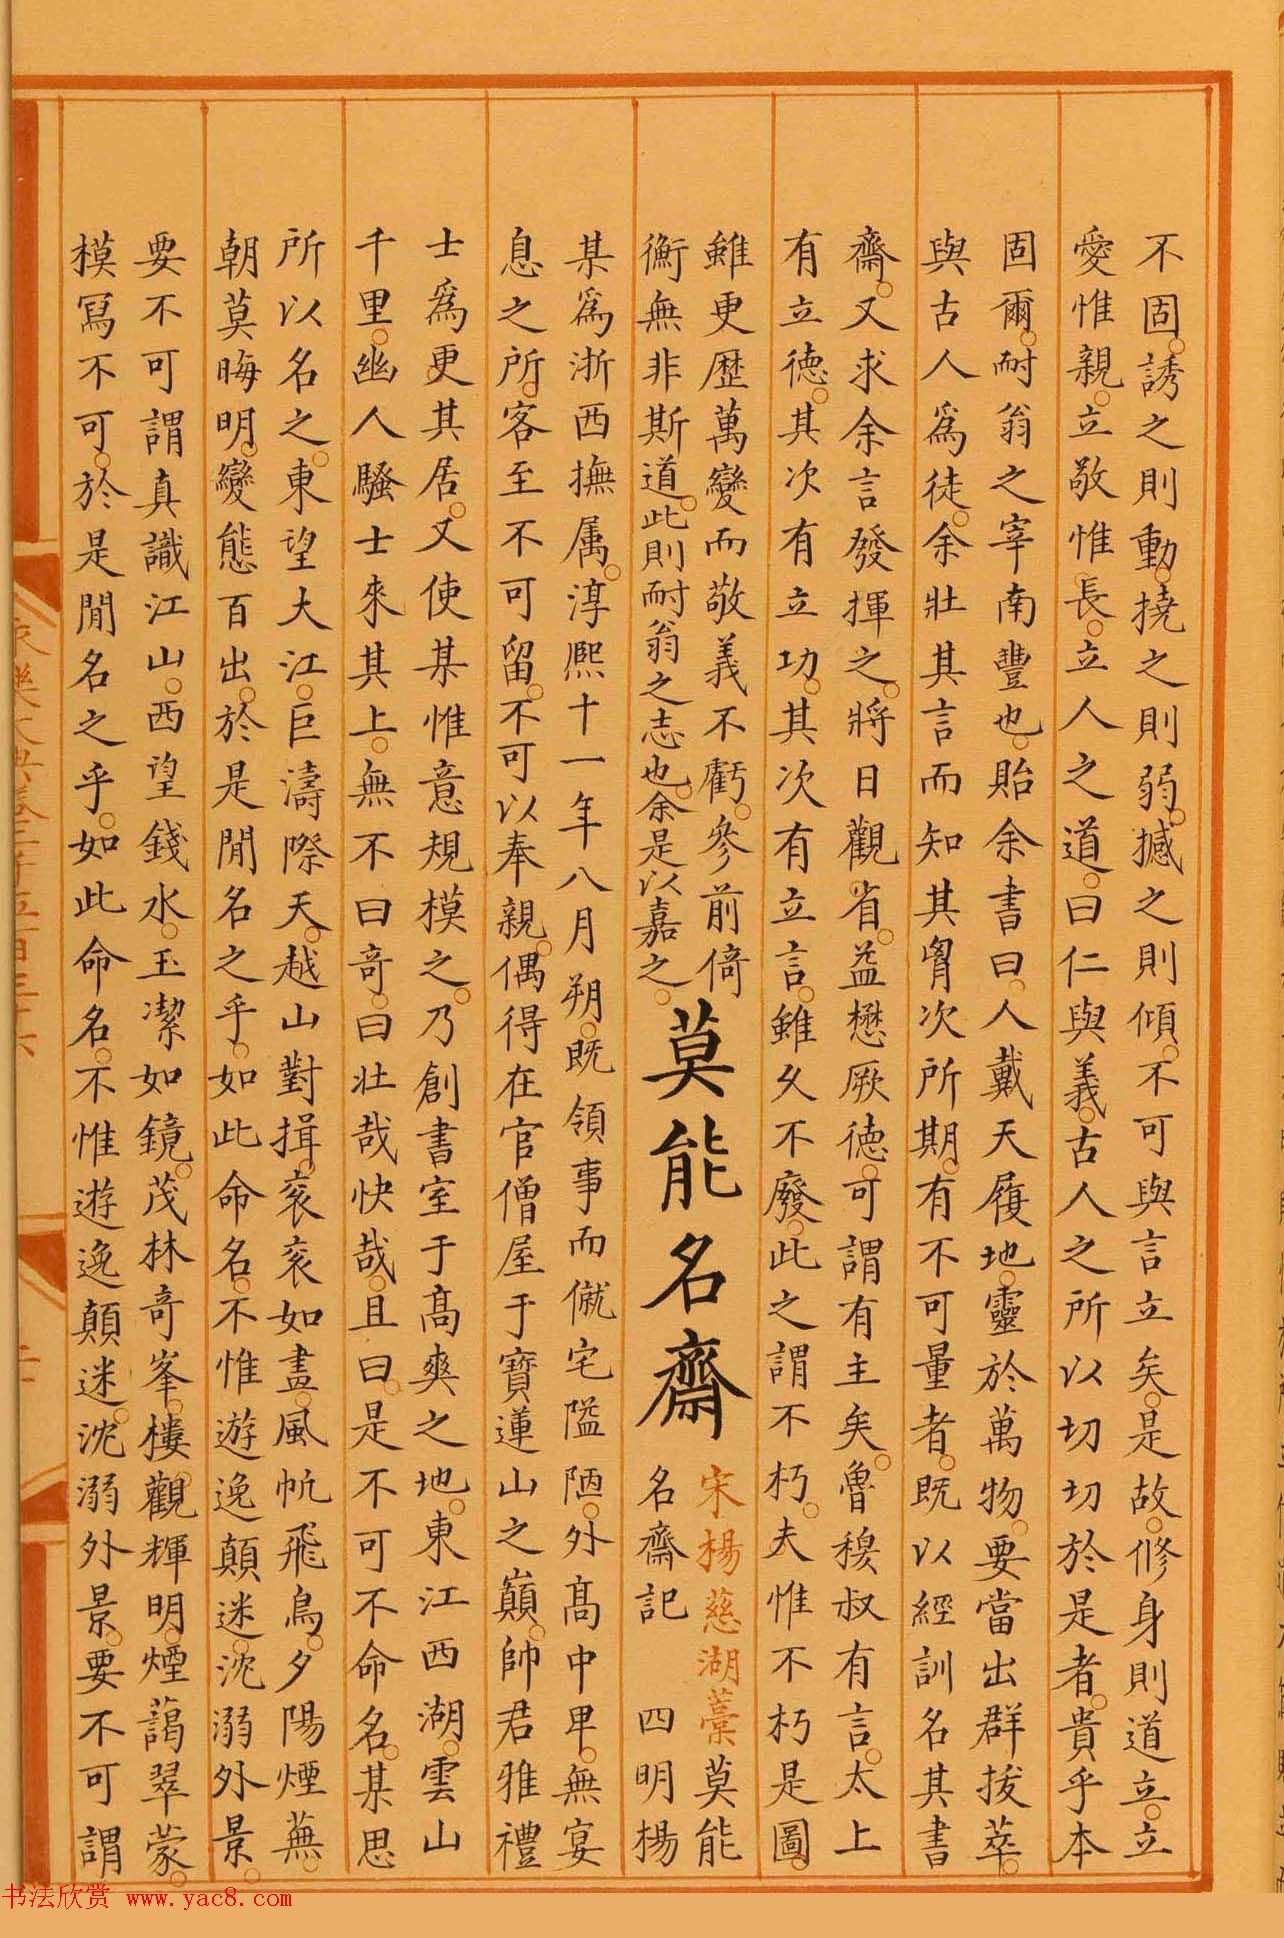 不固誘之則動撓之則弱撼之則傾不可與言立矣是故修身則道立立
愛惟親立敬惟長立人之道曰仁與義古人之所以切切於是者貴乎本
固爾耐翁之宰南豐也貽余書曰人戴天履地靈於萬物要當出群拔萃
與古人爲徒余壯其言而知其胷次所期有不可量者既以經訓名其書
齋又求余言發揮之將日觀省益懋厥德可謂有主矣魯穆叔有言太上
有立德其次有立功其次有立言雖久不廢此之謂不朽夫惟不朽是圖
雖更歷萬變而敬義不虧參前倚
衡無非斯道此則耐翁之志也余是以嘉之
莫能名齋
宋楊慈湖藁莫能
名齋記 四明楊
某爲浙西撫属淳熙十一年八月朔既領事而僦宅隘陋外高中甲無宴
息之所客至不可留不可以奉親偶得在官僧屋于寶蓮山之巔帥君雅禮
士爲更其居又使某惟意規模之乃創書室于高爽之地東江西湖雲山
千里幽人騷士來其上無不曰奇曰壯哉快哉且曰是不可不命名某思
所以名之東望大江巨濤際天越山對揖衮衮如畫風帆飛鳥夕陽煙蕪
朝莫晦明變態百出於是閒名之乎如此命名不惟遊逸顛迷沈溺外景
要不可謂真識江山西望錢水玉潔如鏡茂林奇峯樓觀輝明煙藹翠蒙
模寫不可於是閒名之乎如此命名不惟遊逸顛迷沈溺外景要不可謂
书法欣赏 www.yac8.com